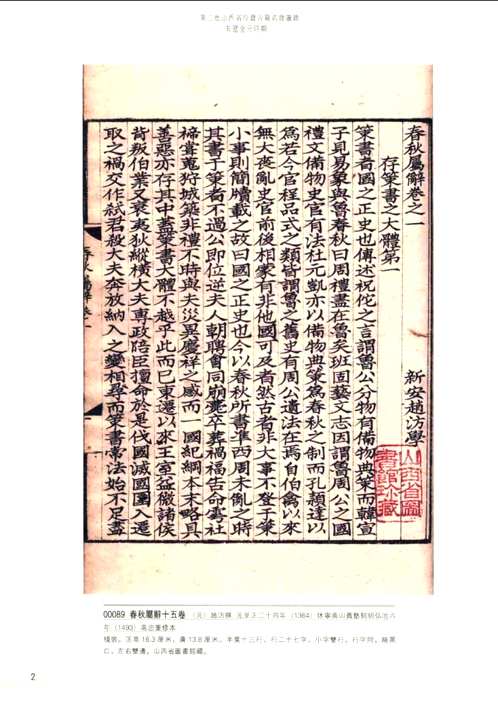 第二批山西省珍貴古籍名錄圖錄
春秋屬辭卷之一
新安趙汸學
存策書之大體第一
策書者國之正史也傳述祝佗之言謂魯公分物有備物典策而韓宣
子見易象與魯春秋曰周禮盡在魯矣班固藝文志因謂魯周公之國
禮文備物史官有法杜元凱亦以備物典策為春秋之制而孔穎達以
為若今官程品式之類皆謂魯之舊史有周公遺法在焉自伯禽以來
無大喪亂史官前後相蒙有非他國可及者然古者非大事不登于策
小事則簡牘載之故曰國之正史也今以春秋所書準西周未亂之時
其書于策者不過公即位逆夫人朝聘會同崩薨卒葬禍福告命雩社
禘嘗蒐狩城築非禮不時與夫災異慶祥之感而一國紀綱本末略具
善惡亦存其中蓋策書大體不越乎此而已東遷以來王室益微諸侯
背叛伯業又衰夷狄縱橫大夫專政陪臣擅命於是伐國滅國圍入遷
取之禍交作弒君殺大夫奔放納入之變相尋而策書常法始不足盡
山西省圖書館珍藏
00089 春秋屬辭十五卷 (元)趙汸撰 元至正二十四年(1364)休寧商山義塾刻明弘治六
年(1493)高忠重修本
綫裝。匡高18.3厘米,廣13.8厘米,半葉十三行,行二十七字,小字雙行,行字同,細黑
口,左右雙邊。山西省圖書館藏。
2